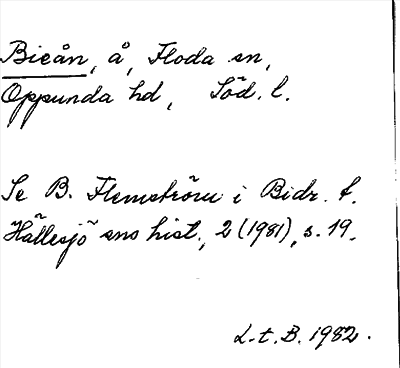 Bieån, å, Floda sn,
Oppunda hd, Söd. l.
Se B. Flemström i Bidr. t.
Hällesjö sns hist., 2 (1981), s. 19.
L.t.B. 1982.